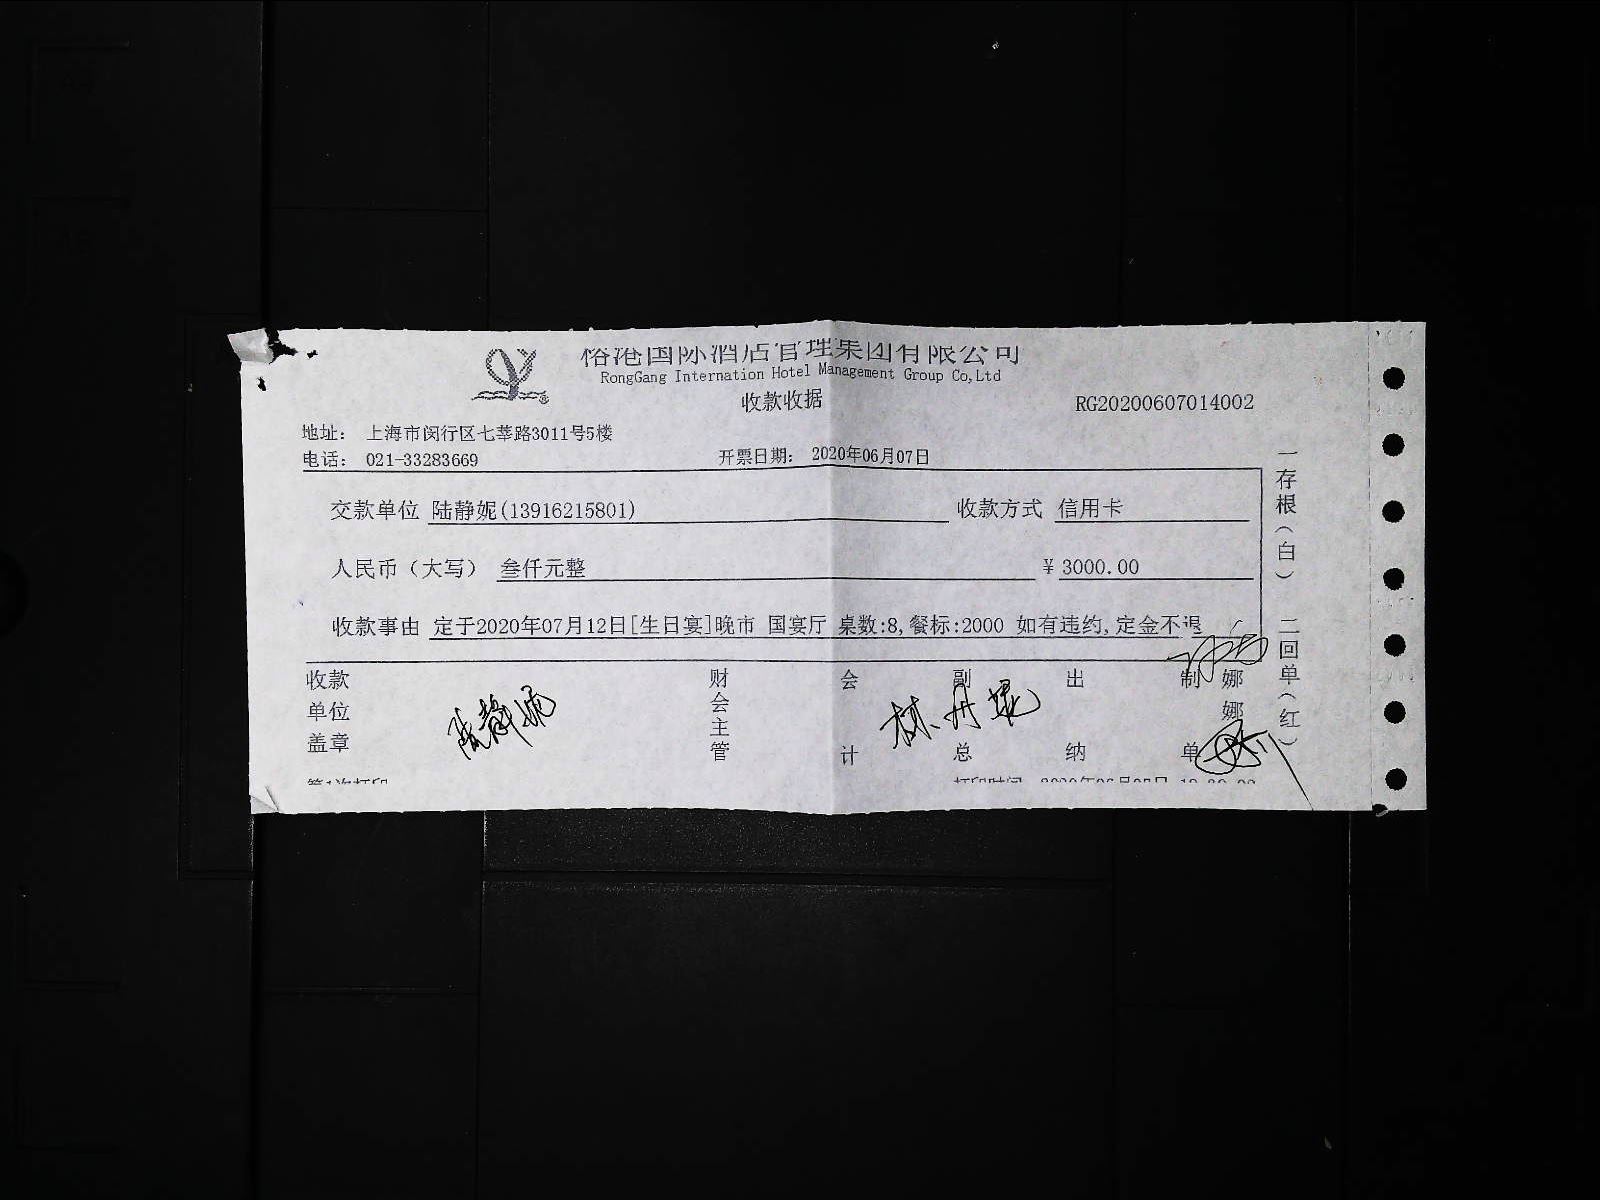 港国际酒店管理集团有限公司
RongGang Internation Hotel Management Group Co,Ltd
收款收据
RG20200607014002
地址： 上海市闵行区七莘路3011号5楼
电话： 021-33283669
开票日期： 2020年06月07日
交款单位 陆静妮(13916215801)
收款方式 信用卡
人民币（大写） 叁仟元整
¥ 3000.00
收款事由 定于2020年07月12日[生日宴]晚市 国宴厅 桌数:8,餐标:2000 如有违约,定金不退
收款单位盖章
陆静妮
财会主管
会计
林丹
副总
出纳
制单
娜娜
一存根（白） 二回单（红）
第1次打印
打印时间